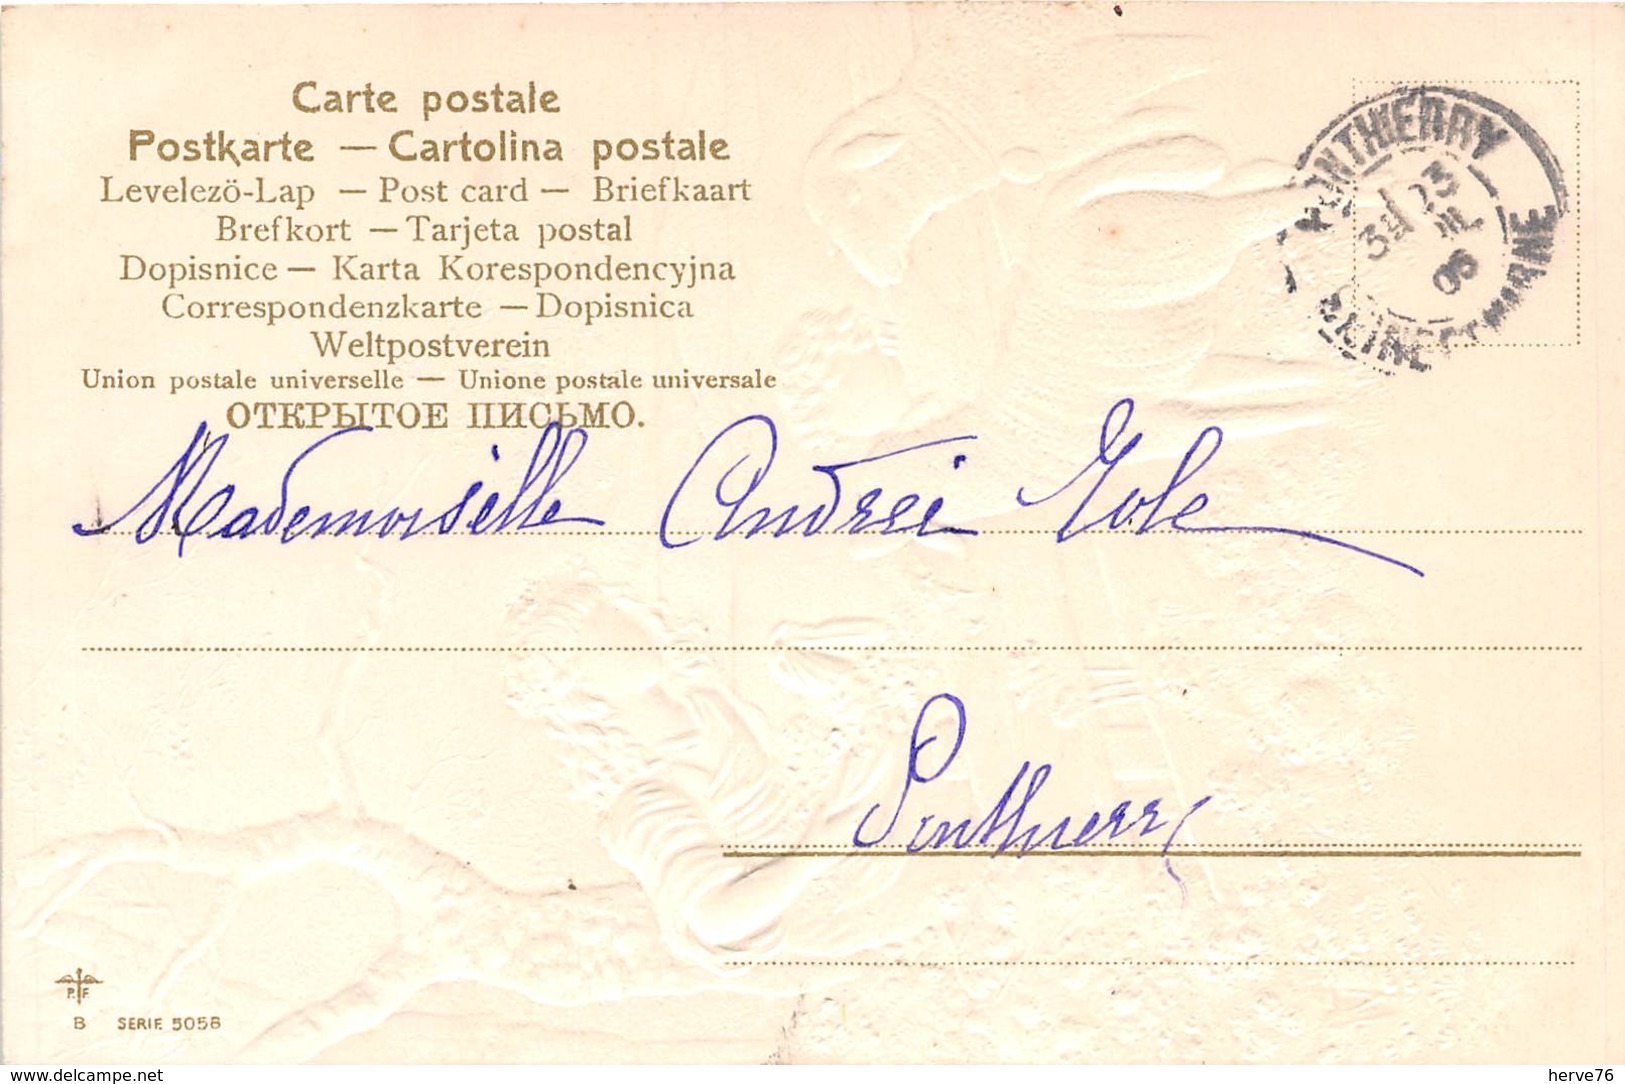 Carte postale
Postkarte — Cartolina postale
Levelezö-Lap — Post card — Briefkaart
Brefkort — Tarjeta postal
Dopisnice — Karta Korespondencyjna
Correspondenzkarte — Dopisnica
Weltpostverein
Union postale universelle — Unione postale universale
ОТКРЫТОЕ ПИСЬМО.
PONTHIERRY
23
05
SEINE ET MARNE
Mademoiselle
Ponthierry
P.F.
B SERIE 5058
delcampe.net
herve76